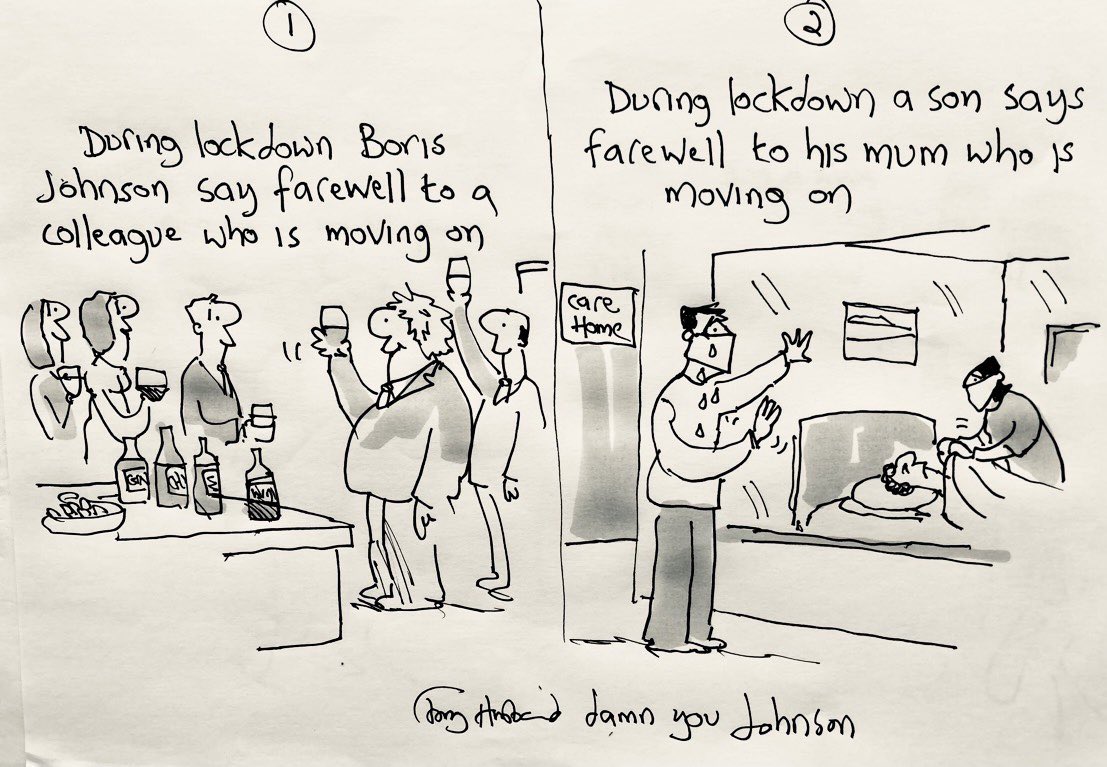 1
During lockdown Boris
Johnson say farewell to a
colleague who is moving on
GIN
2
During lockdown a son says
farewell to his mum who is
moving on
care
Home
Tony Husband damn you Johnson